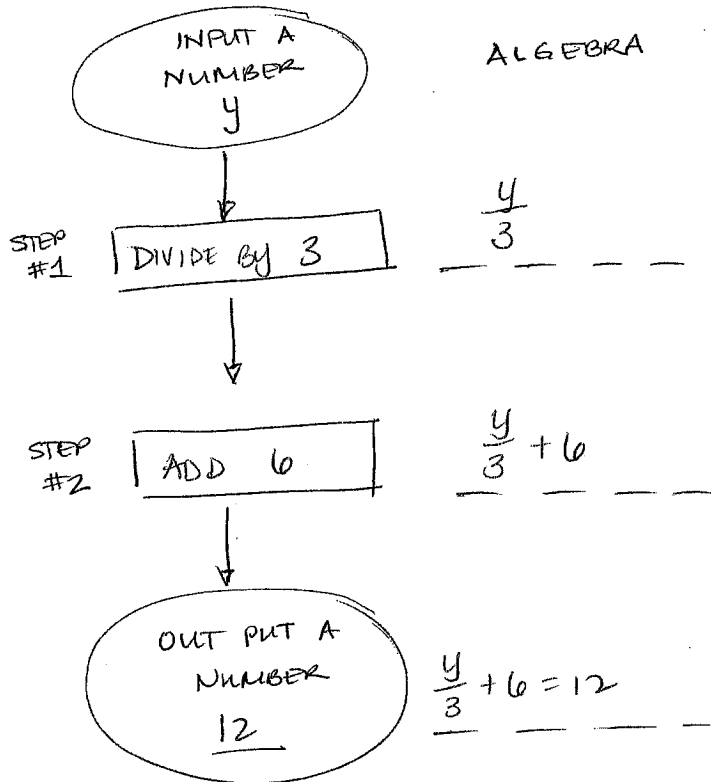 INPUT A
NUMBER
y
ALGEBRA
STEP
#1
DIVIDE BY 3
y
3
STEP
#2
ADD 6
y
3 + 6
OUT PUT A
NUMBER
12
y
3 + 6 = 12